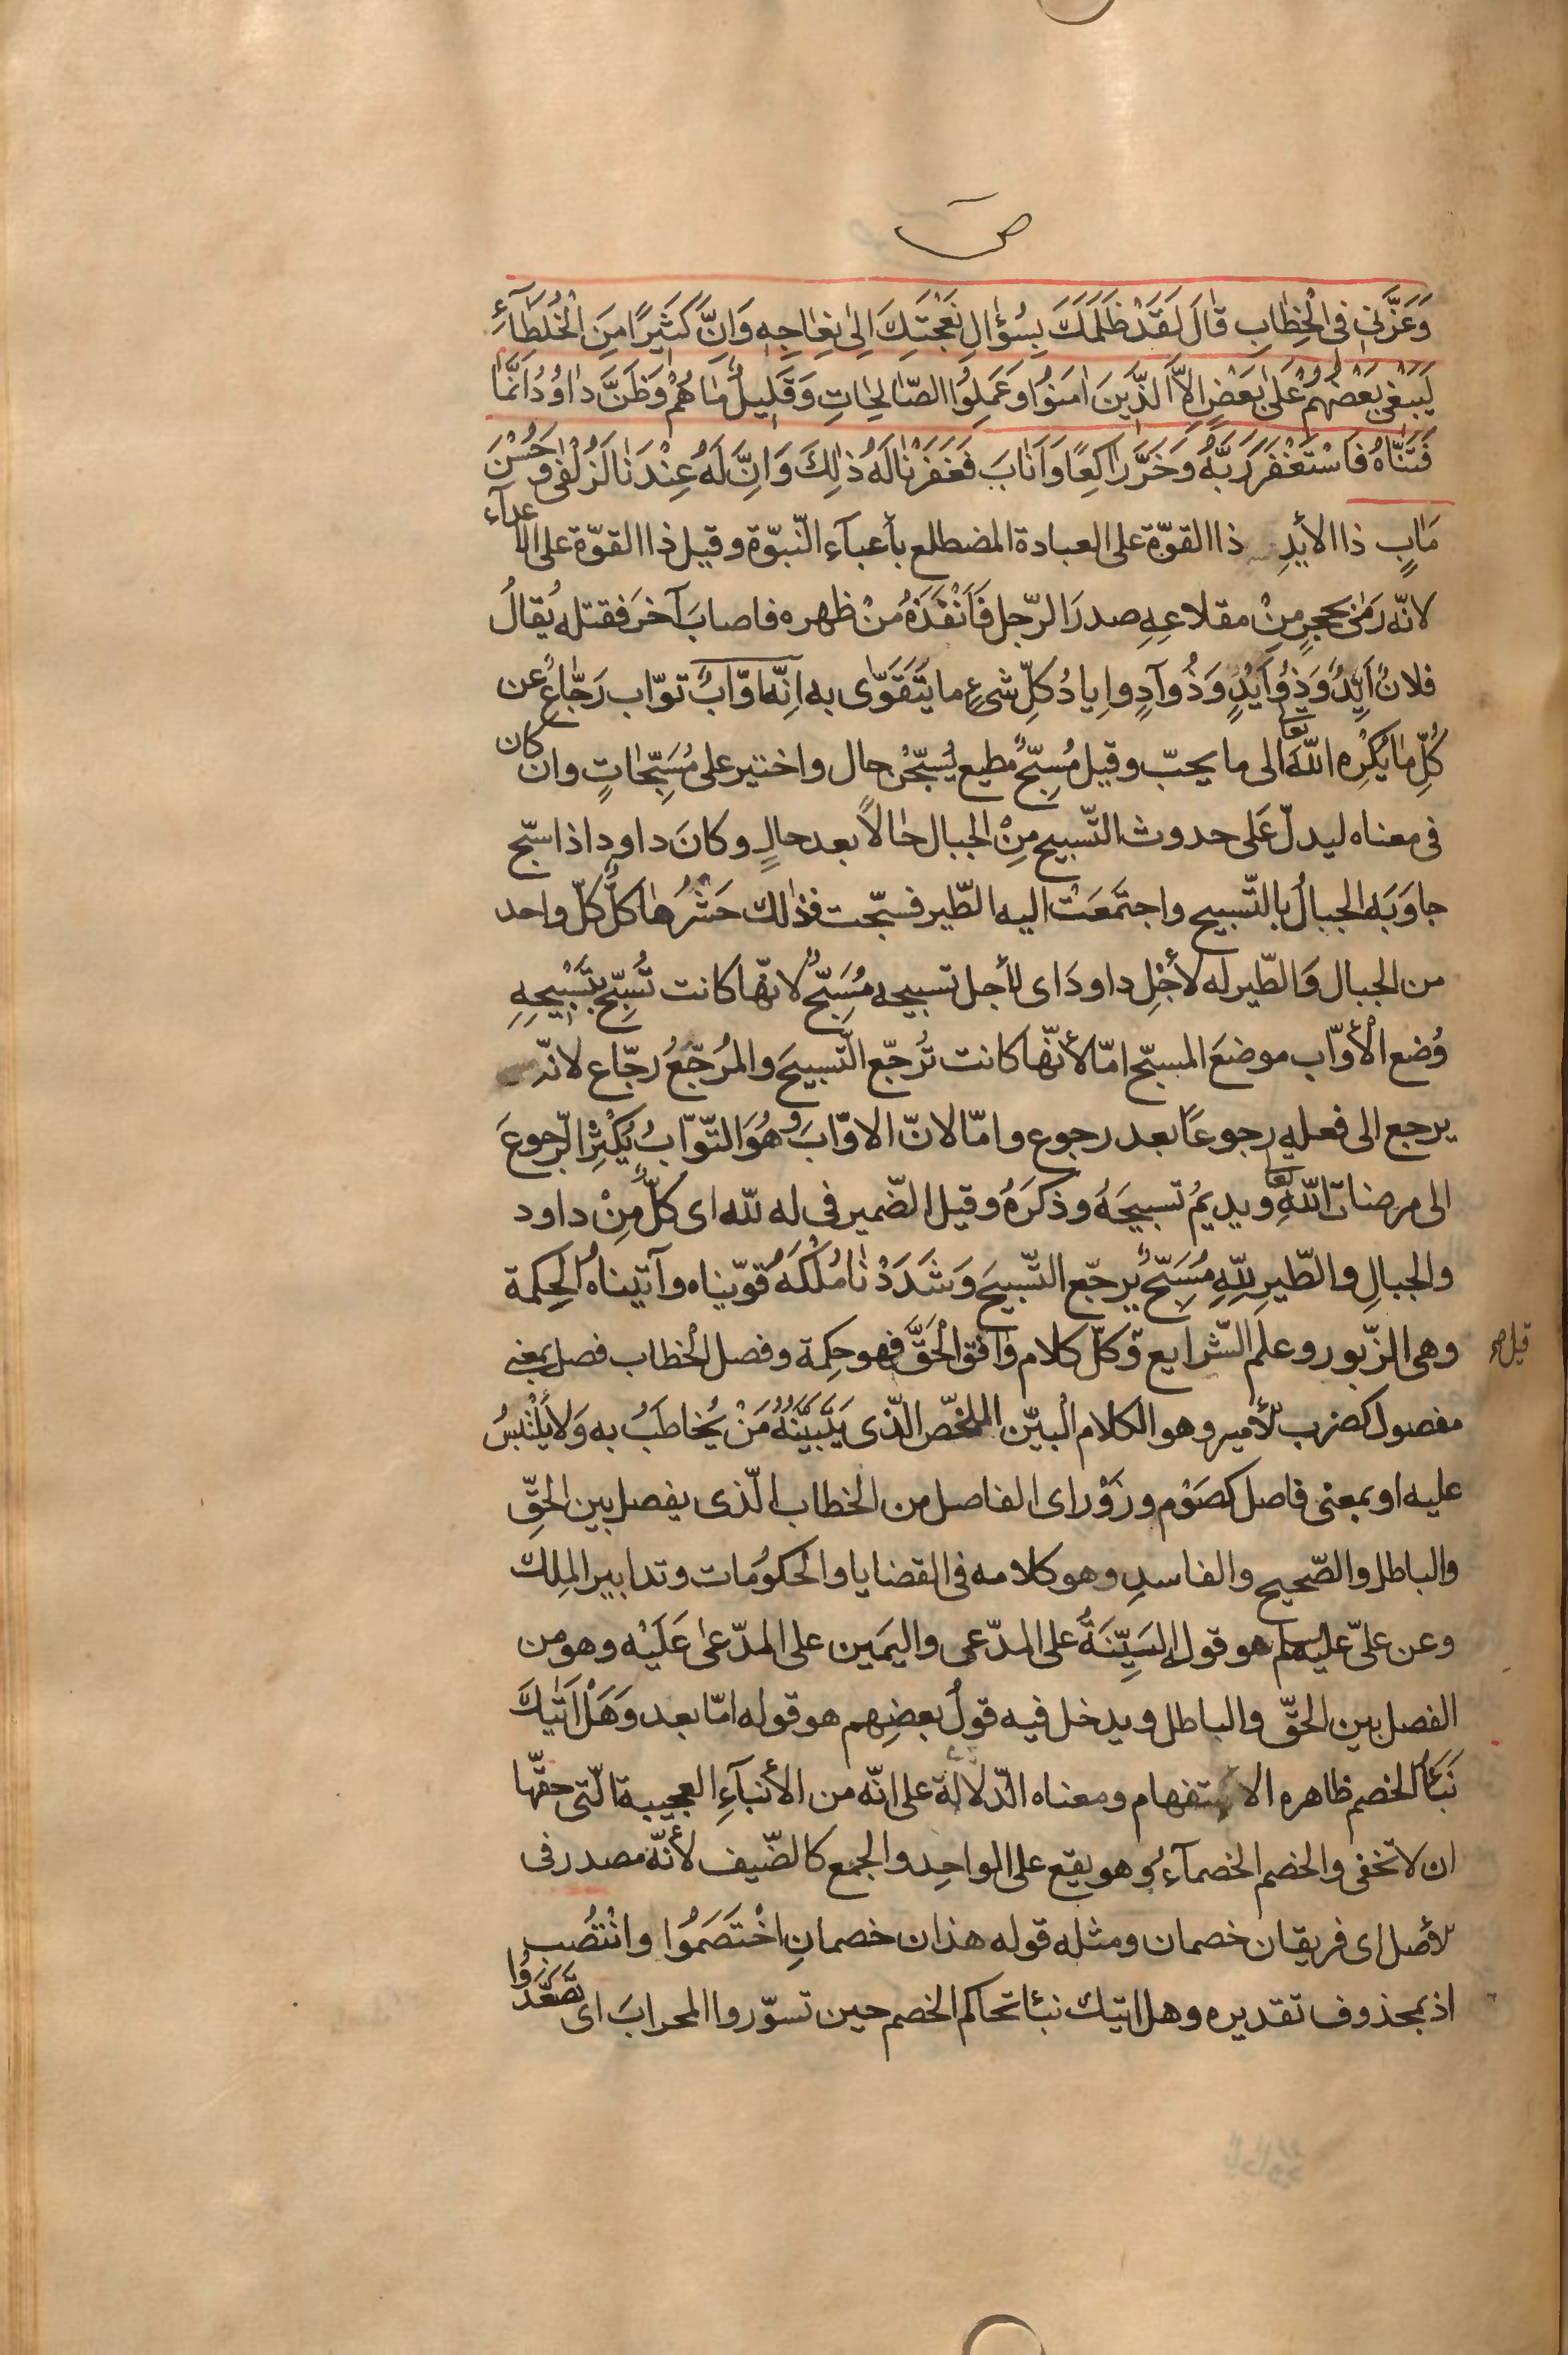 ص
وَعَزَّنِي فِي الْخِطَابِ قَالَ لَقَدْ ظَلَمَكَ بِسُؤٰالِ نَعْجَتِكَ اِلٰى نِعٰاجِهِ وَاِنَّ كَثِيرًا مِنَ الْخُلَطٰآءِ
لَيَبْغِي بَعْضُهُمْ عَلٰى بَعْضٍ اِلَّا الَّذِينَ اٰمَنُوا وَعَمِلُوا الصّٰالِحٰاتِ وَقَلِيلٌ مٰا هُمْ وَظَنَّ دٰاوُدُ اَنَّمٰا
فَتَنّٰاهُ فَاسْتَغْفَرَ رَبَّهُ وَخَرَّ رٰاكِعًا وَاَنٰابَ فَغَفَرْنٰا لَهُ ذٰلِكَ وَاِنَّ لَهُ عِنْدَنٰا لَزُلْفٰى وَحُسْنَ
مَاٰبٍ ذا الأيدِ ذا القوّة على العبادة المضطلع بأعبآء النّبوّة وقيل ذا القوّة على الأعدآء
لانّه رَمٰى بحجرٍ مِنْ مقلاعِهِ صدرَ الرّجل فَاَنْفَذَهُ مِنْ ظهره فاصابَ آخرَ فقتله يُقالُ
فلانٌ اَيِّدٌ وَذُو اَيْدٍ وَذُو آدٍ واِيادُ كلِّ شىءٍ ما يَتَقَوّٰى به اِنّه اوّابٌ توّاب رَجّاعٌ عن
كُلِّ مٰا يُكْرِه اللّهَ تعا الى ما يحبّ وقيل مُسبِّحٌ مُطيع يُسَبِّحْنَ حال واختير على مُسَبِّحٰاتٍ وان كان
فى معناه ليدلّ عَلى حدوث التّسبيح مِنْ الجبال حٰالاً بعد حالٍ وكانَ داود اذا سبّح
جاوَبَه الجبالُ بالتّسبيح واجتَمَعَتْ اليه الطّير فسبّحت فذٰلك حَشْرُهٰا كُلٌّ كلّ واحد
من الجبال وَالطّير له لأَجْلِ داودَ اى لأجل تسبيحه مُسَبِّحٌ لانّها كانت تُسَبِّحُ بِتَسْبِيحِهِ
وُضع الأوّاب موضعَ المسبّح امّا لأنّها كانت تُرجّع التّسبيحَ والمُرجّعُ رجّاع لانّه
يرجع الى فعله رجوعًا بعد رجوع وامّا لانّ الاوّابَ وهُوَ التّوّابُ يُكْثِرُ الرّجوعَ
الى مرضات اللّهِ تعا ويديمُ تسبيحَهُ وذكرَهُ وقيل الضّمير فى له للّه اى كلٌّ مِنْ داود
والجبالِ والطّيرِ لِلّهِ مُسَبِّحٌ يُرجّع التّسبيحَ وَشَدَدْنٰا مُلْكَهُ قوّيناه وآتيناهُ الحِكمة
وهى الزّبور وعلم الشّرايع وكلّ كلام وافق الحَقَّ فهو حِكمة وفصل الخطاب فصل بمعنى
قيل صح
مفصول كضرب الأمير وهو الكلام البيّن الملخّص الّذى يَتَبَيَّنُهُ مَنْ يُخاطَبُ به وَلا يَلْتَبِسُ
عليه او بمعنى فاصل كصَوْم وزَوْر اى الفاصل من الخطاب الّذى يفصل بين الحَقِّ
والباطل والصّحيح والفاسدِ وهو كلامه فى القضايا والحكوُمات وتدابير المِلك
وعن علىّ عليه السلم هو قوله البَيِّنَةُ على المدّعى واليمَين على المدّعىٰ عَلَيْه وهو من
الفصل بين الحَقّ والباطل ويدخل فيه قولُ بعضِهم هو قوله امّا بعد وَهَلْ اَتٰيكَ
نَبَأُ الخصم ظاهره الاستفهام ومعناه الدّلالة على انّه من الأنبآءِ العجيبة الّتى حقّها
ان لا تخفى والخصم الخصمآءُ وهو يقع على الواحِد والجمع كالضّيف لأنّه مصدر فى
الأصل اى فريقان خصمان ومثله قوله هذان خصمانِ اخْتَصَمُوا وانْتَصَب
اذ بمحذوف تقديره وهل اتيك نبئا تحاكم الخصم حين تسوّروا المحرابَ اى تَصَعَّدُوا